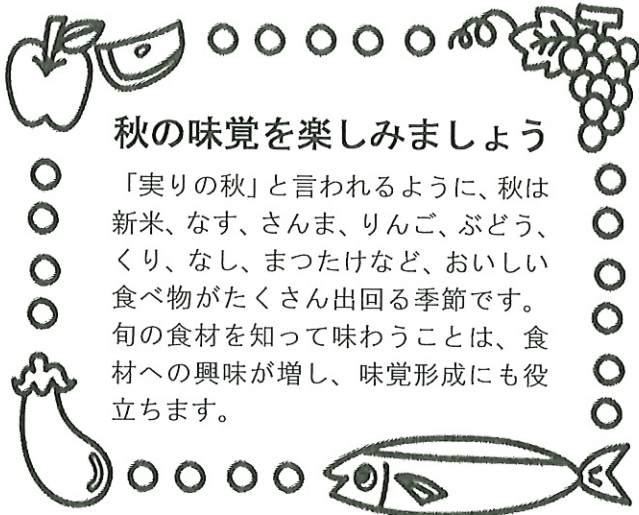 秋の味覚を楽しみましょう
「実りの秋」と言われるように、秋は
新米、なす、さんま、りんご、ぶどう、
くり、なし、まつたけなど、おいしい
食べ物がたくさん出回る季節です。
旬の食材を知って味わうことは、食
材への興味が増し、味覚形成にも役
立ちます。